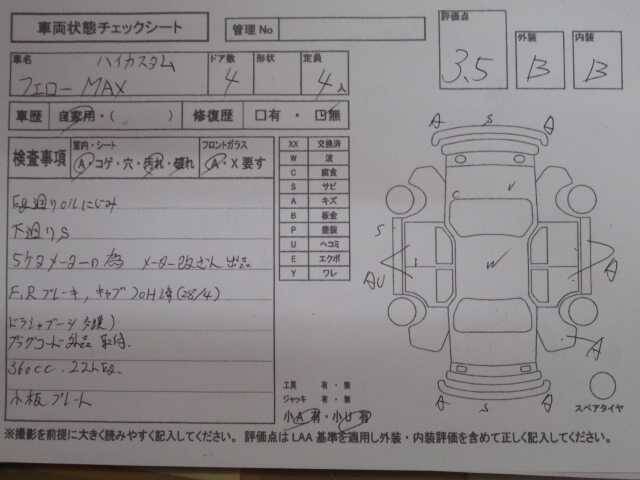 車両状態チェックシート
管理No
評価点
3.5
外装
B
内装
B
車名
ハイカスタム
フェローMAX
ドア数
4
形状
定員
4人
車歴
自家用・( )
修復歴
□有・☑無
検査事項
室内・シート
A・コゲ・穴・汚れ・破れ
フロントガラス
A・X要す
Eg廻りOILにじみ
下廻りS
5ケタメーターの為 メーター改ざん出品
F,Rブレーキ,キャブ
ドラシャブーツ
プラグコード社外品 取付.
360cc.
小板プレート
XX 交換済
W 波
C 腐食
S サビ
A キズ
B 板金
P 塗装
U ヘコミ
E エクボ
Y ワレ
工具 有・無
ジャッキ 有・無
小A 有・小U 有
A S A
C V
S
AU
W
A
A
A S A
スペアタイヤ
※撮影を前提に大きく読みやすく記入してください。 評価点は LAA 基準を適用し外装・内装評価を含めて正しく記入してください。